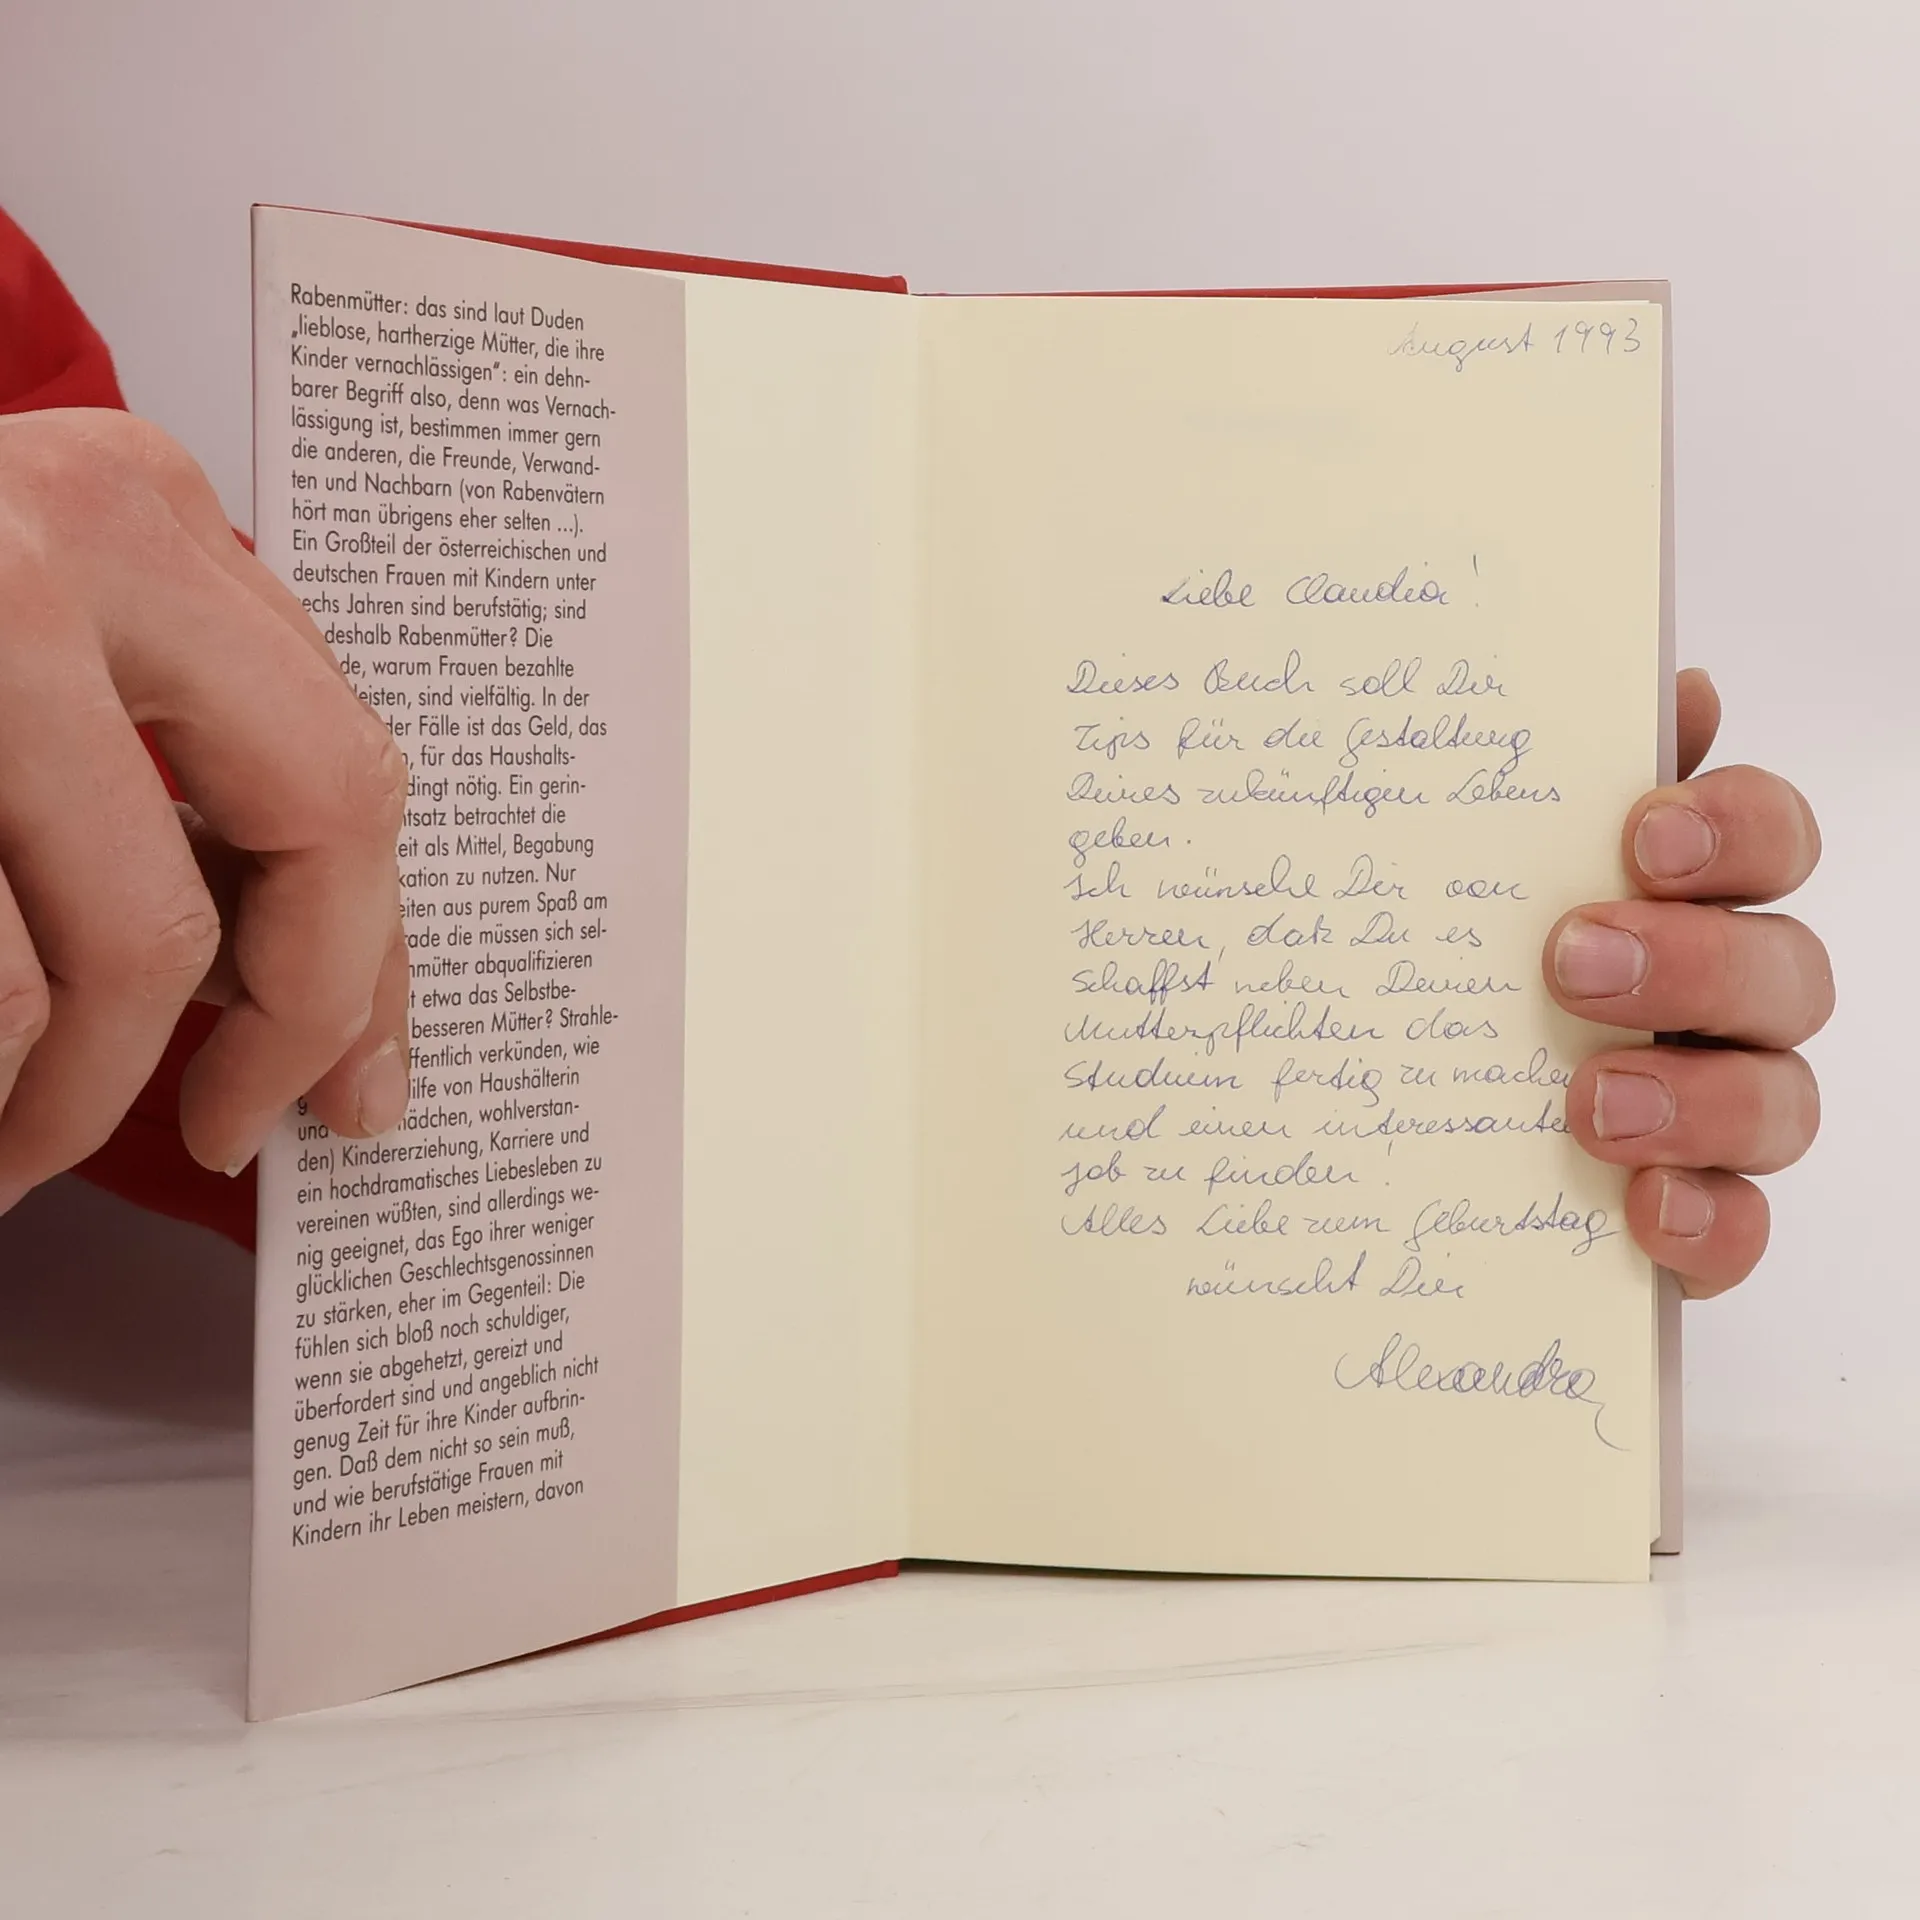 Rabenmütter: das sind laut Duden
„lieblose, hartherzige Mütter, die ihre
Kinder vernachlässigen“: ein dehn-
barer Begriff also, denn was Vernach-
lässigung ist, bestimmen immer gern
die anderen, die Freunde, Verwand-
ten und Nachbarn (von Rabenvätern
hört man übrigens eher selten ...).
Ein Großteil der österreichischen und
deutschen Frauen mit Kindern unter
echs Jahren sind berufstätig; sind
deshalb Rabenmütter? Die
de, warum Frauen bezahlte
leisten, sind vielfältig. In der
der Fälle ist das Geld, das
, für das Haushalts-
dingt nötig. Ein gerin-
tsatz betrachtet die
eit als Mittel, Begabung
kation zu nutzen. Nur
eiten aus purem Spaß am
ade die müssen sich sel-
mütter abqualifizieren
t etwa das Selbstbe-
besseren Mütter? Strahle-
ffentlich verkünden, wie
g ilfe von Haushälterin
und ädchen, wohlverstan-
den) Kindererziehung, Karriere und
ein hochdramatisches Liebesleben zu
vereinen wüßten, sind allerdings we-
nig geeignet, das Ego ihrer weniger
glücklichen Geschlechtsgenossinnen
zu stärken, eher im Gegenteil: Die
fühlen sich bloß noch schuldiger,
wenn sie abgehetzt, gereizt und
überfordert sind und angeblich nicht
genug Zeit für ihre Kinder aufbrin-
gen. Daß dem nicht so sein muß,
und wie berufstätige Frauen mit
Kindern ihr Leben meistern, davon
August 1993
Liebe Claudia!
Dieses Buch soll Dir
Tips für die Gestaltung
Deines zukünftigen Lebens
geben.
Ich wünsche Dir von
Herzen, daß Du es
schaffst neben Deinen
Mutterpflichten das
Studium fertig zu machen
und einen interessanten
Job zu finden!
Alles Liebe zum Geburtstag
wünscht Dir
Alexandra